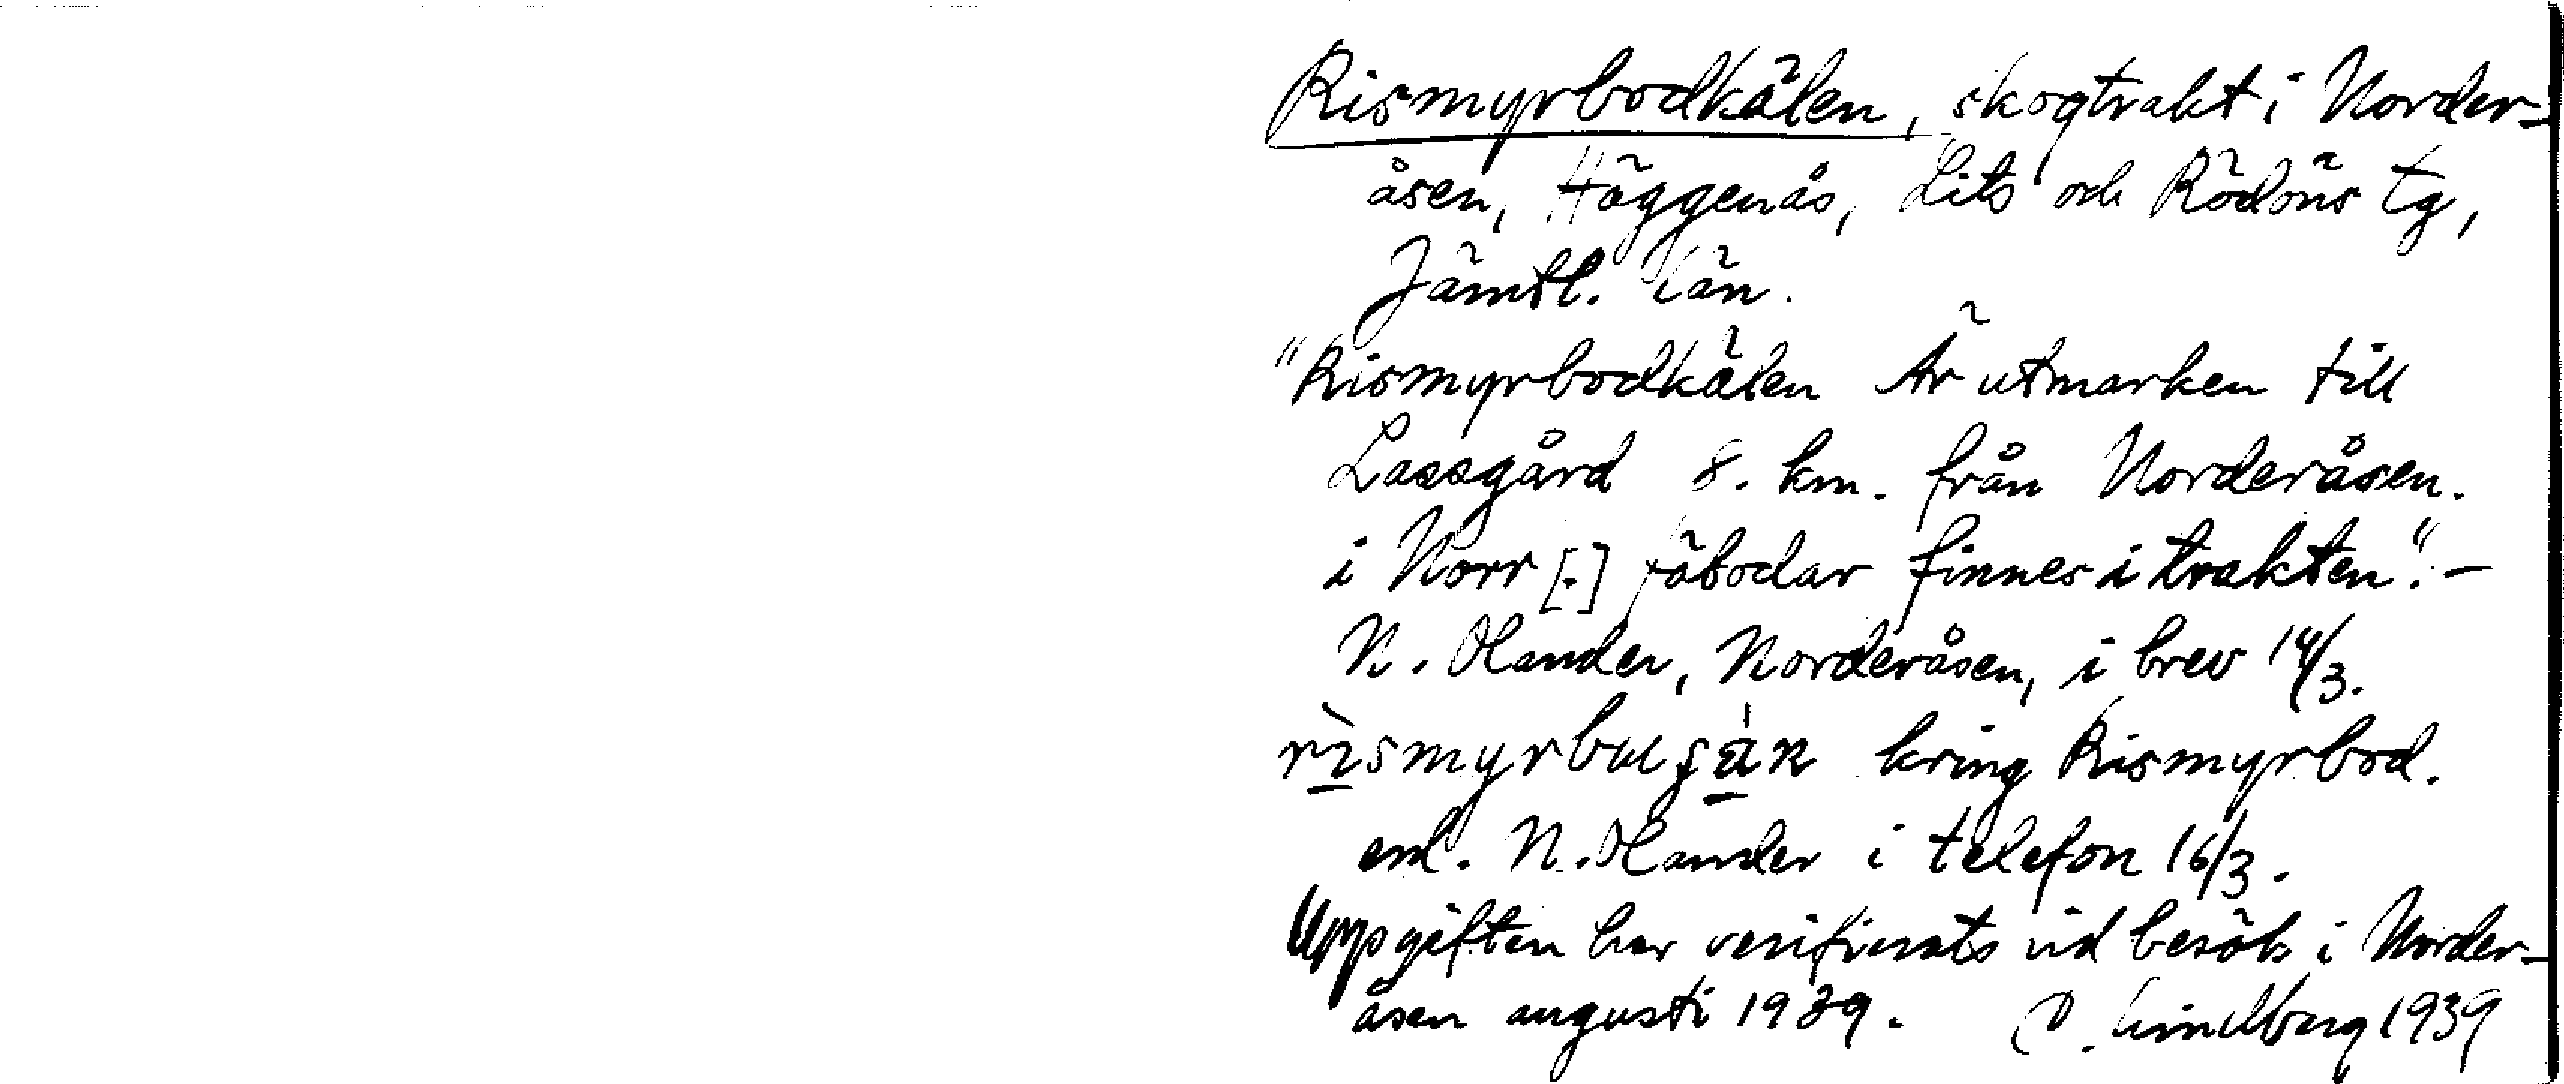 Rismyrbodkälen, skogtrakt i Norder-
åsen, Häggenås, Lits och Rödöns tg,
Jämtl. län.
"Rismyrbodkälen Är utmarken till
Lassgård 8. km. från Norderåsen.
i Norr [.] fäbodar finnes i trakten". -
N. Olander, Norderåsen, i brev 14/3.
kring Rismyrbod.
enl. N. Olander i telefon 16/3.
Uppgiften har verifierats vid besök i Norder-
åsen augusti 1939. O. Lindberg 1939